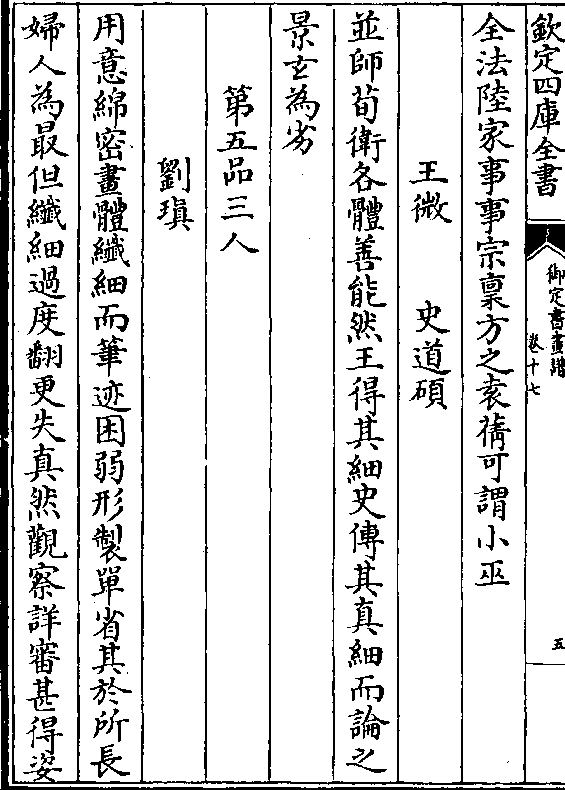 欽定四庫全書
御定書畫譜
卷十七
五
全法陸家事事宗稟方之袁蒨可謂小巫
王微　史道碩
並師荀衛各體善能然王得其細史傳其真細而論之
景玄為劣
第五品三人
劉瑱
用意綿密畫體纖細而筆迹困弱形製單省其於所長
婦人為最但纖細過度翻更失真然觀察詳審甚得姿